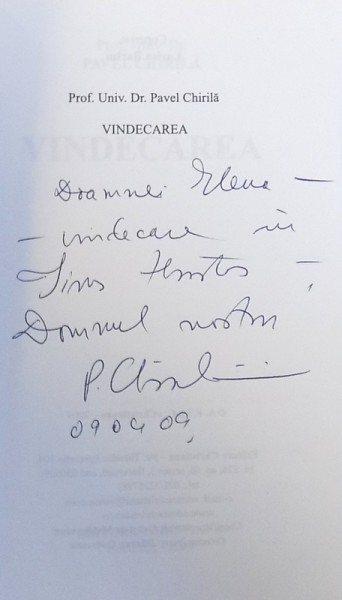 Prof. Univ. Dr. Pavel Chirilă
VINDECAREA
VINDECAREA
Doamnei Elena —
— vindecare în
Iisus Hristos —
Domnul nostru
P. Chirilă
09 04 09